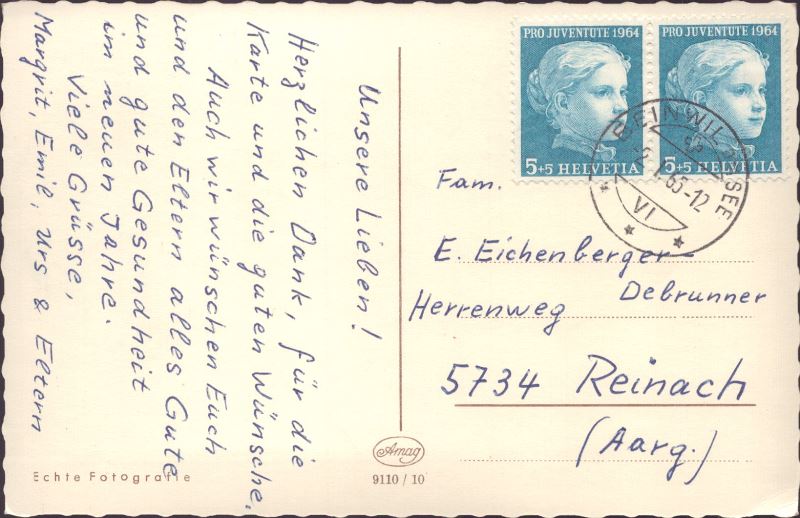 Unsere Lieben!
Herzlichen Dank, für die
Karte und die guten Wünsche.
Auch wir wünschen Euch
und den Eltern alles Gute
und gute Gesundheit
im neuen Jahre.
Viele Grüsse,
Margrit, Emil, Urs & Eltern
Echte Fotografie
Amag
9110 / 10
PRO JUVENTUTE 1964
5+5 HELVETIA
PRO JUVENTUTE 1964
5+5 HELVETIA
BEINWIL SEE
65-12
VI
Fam.
E. Eichenberger-
Debrunner
Herrenweg
5734 Reinach
(Aarg.)